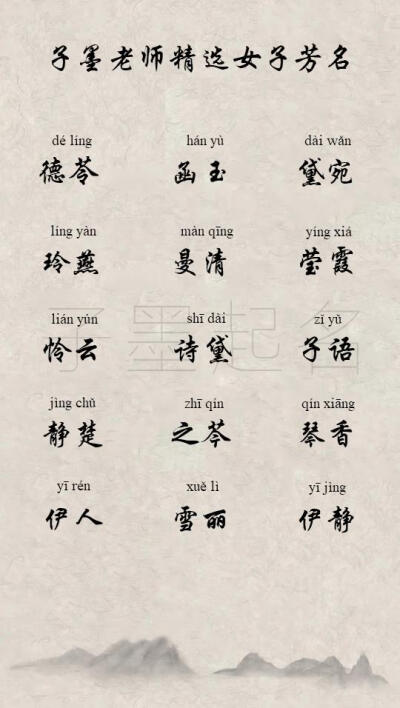 子墨老师精选女子芳名
dé líng hán yù dài wǎn
德苓 函玉 黛宛
líng yàn màn qīng yíng xiá
玲燕 曼清 莹霞
子墨起名
lián yún shī dài zǐ yǔ
怜云 诗黛 子语
jìng chǔ zhī qín qín xiāng
静楚 之芩 琴香
yī rén xuě lì yī jìng
伊人 雪丽 伊静